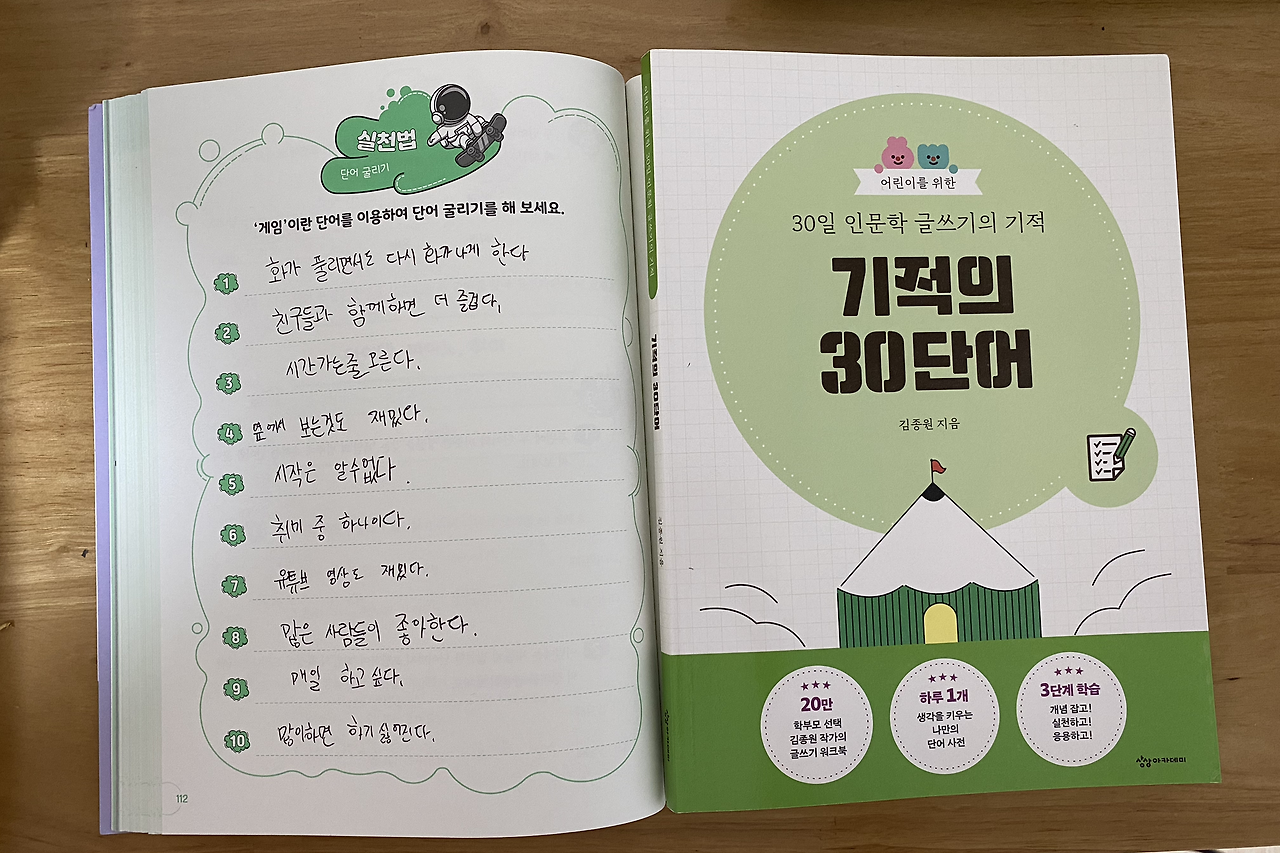 실천법
단어 굴리기
'게임'이란 단어를 이용하여 단어 굴리기를 해 보세요.
1 화가 풀리면서도 다시 화가나게 한다
2 친구들과 함께하면 더 즐겁다.
3 시간가는줄모른다.
4 옆에서 보는것도 재밌다.
5 시작은 알수없다.
6 취미 중 하나이다.
7 유튜브 영상도 재밌다.
8 많은 사람들이 좋아한다.
9 매일 하고싶다.
10 많이하면 하기 싫어진다.
112
어린이를 위한 30일 인문학 글쓰기의 기적
기적의 30단어
김종원 지음
어린이를 위한
30일 인문학 글쓰기의 기적
기적의
30단어
김종원 지음
20만
학부모 선택
김종원 작가의
글쓰기 워크북
하루 1개
생각을 키우는
나만의
단어 사전
3단계 학습
개념 잡고!
실천하고!
응용하고!
상상아카데미